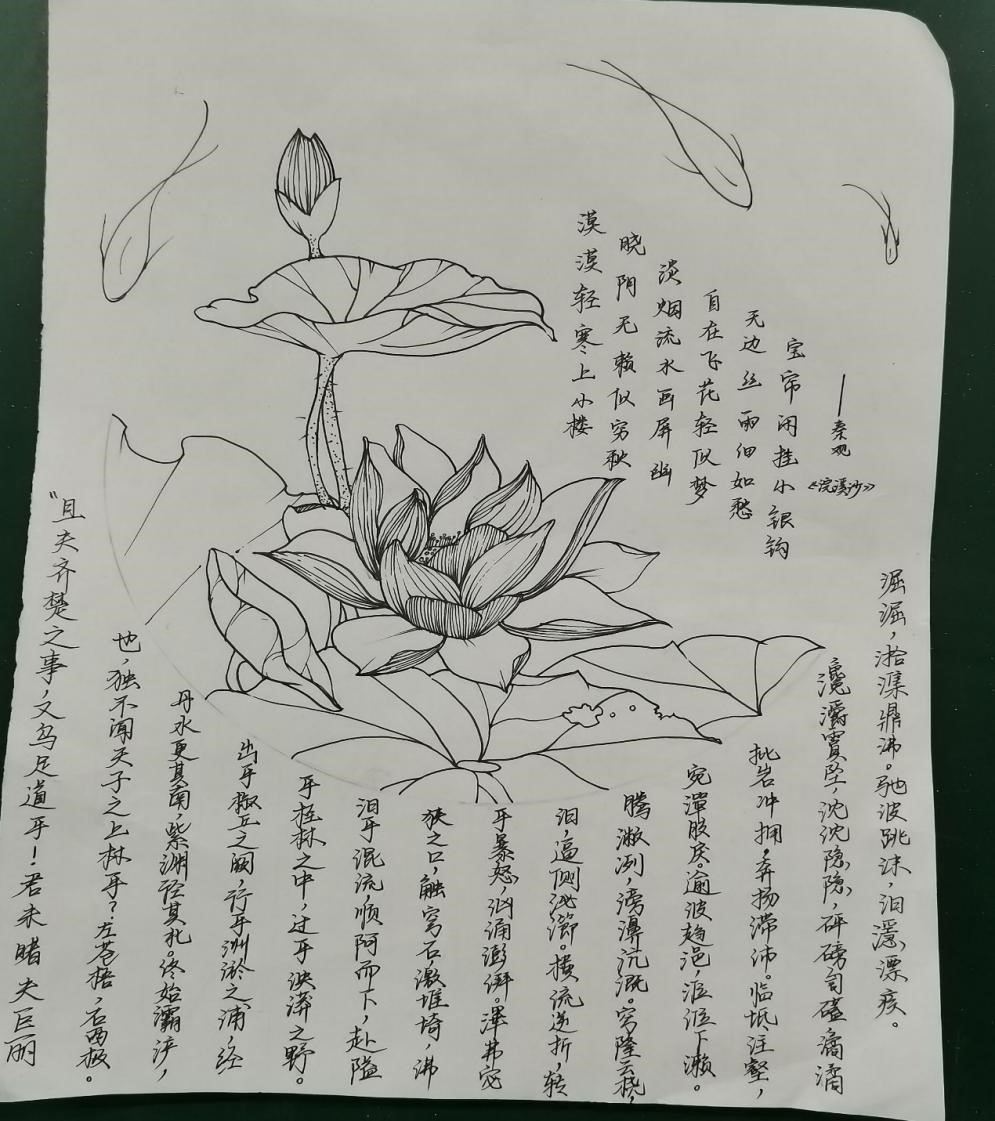 漠漠轻寒上小楼
晓阴无赖似穷秋
淡烟流水画屏幽
自在飞花轻似梦
无边丝雨细如愁
宝帘闲挂小银钩
——秦观
《浣溪沙》
“且夫齐楚之事，又乌足道乎！君未睹夫巨丽
也，独不闻天子之上林乎？左苍梧，右西极。
丹水更其南，紫渊径其北。终始灞浐，
出乎椒丘之阙，行乎洲淤之浦，经
乎桂林之中，过乎泱漭之野。
汩乎混流，顺阿而下，赴隘
狭之口，触穹石，激堆埼，沸
乎暴怒，汹涌澎湃。滭弗宓
汩，逼侧泌瀄。横流逆折，转
腾潎洌，滂濞沆溉。穹隆云桡，
宛潬胶戾。逾波趋浥，涖涖下濑。
批岩冲拥，奔扬滞沛。临坻注壑，
瀺灂霣坠，沈沈隐隐，砰磅訇磕，潏潏
淈淈，湁潗鼎沸。驰波跳沫，汩㴔漂疾。